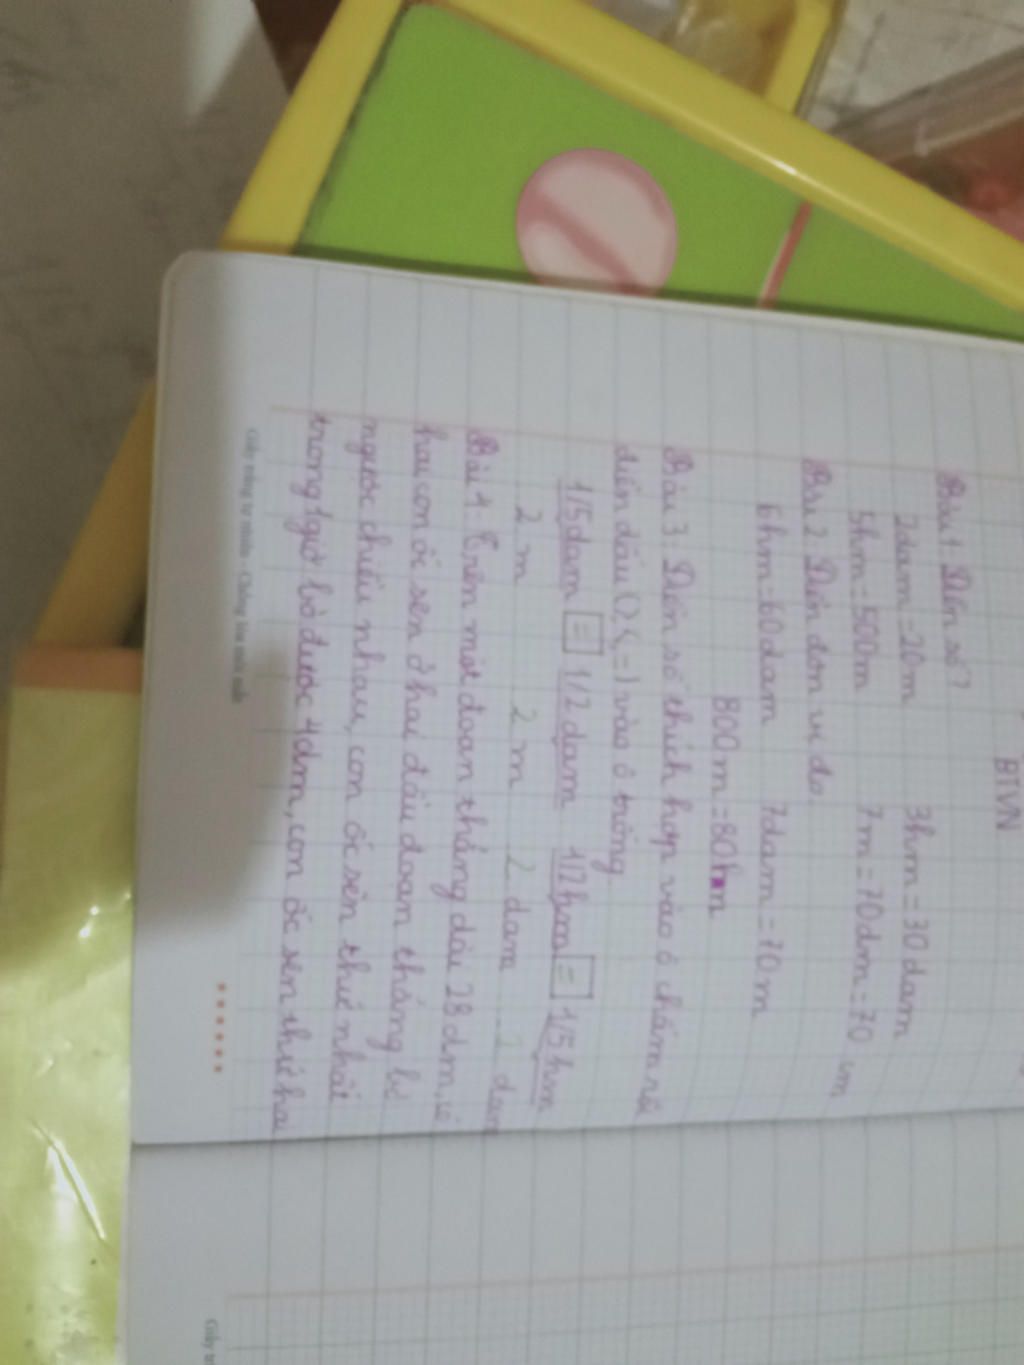 BTVN
Bài 1 Điền số?
2dam = 20m 3hm = 30dam
5hm = 500m 7m = 70dm = 70 cm
Bài 2 Điền đơn vị đo.
6hm = 60dam 7dam = 70m
800m = 80hm
Bài 3 Điền số thích hợp vào ô chấm rồi
điền dấu (>, <, =) vào ô trống
1/5 dam = 1/2 dam 1/2 hm = 1/5 hm
2 m 2 m 2 dam 2 dam
Bài 4: Trên một đoạn thẳng dài 28dm, có
hai con ốc sên ở hai đầu đoạn thẳng bò
ngược chiều nhau, con ốc sên thứ nhất
trong 1 giờ bò được 4dm, con ốc sên thứ hai
Giấy trắng tự nhiên - Chống lóa mỏi mắt